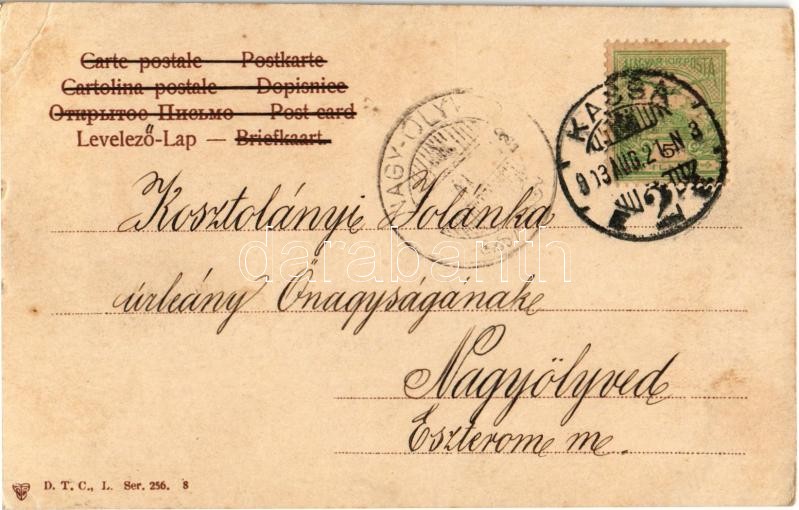 Carte postale — Postkarte
Cartolina postale — Dopisnice
Открытое Письмо — Post card
Levelező-Lap — Briefkaart.
MAGYAR KIR. POSTA
KASSA
913 AUG. 21. N 3
2
NAGY-ÖLY
Kosztolányi Jolánka
úrleány Őnagyságának
Nagyölyved
Eszterom m.
darabanth
D. T. C., L. Ser. 256. 8